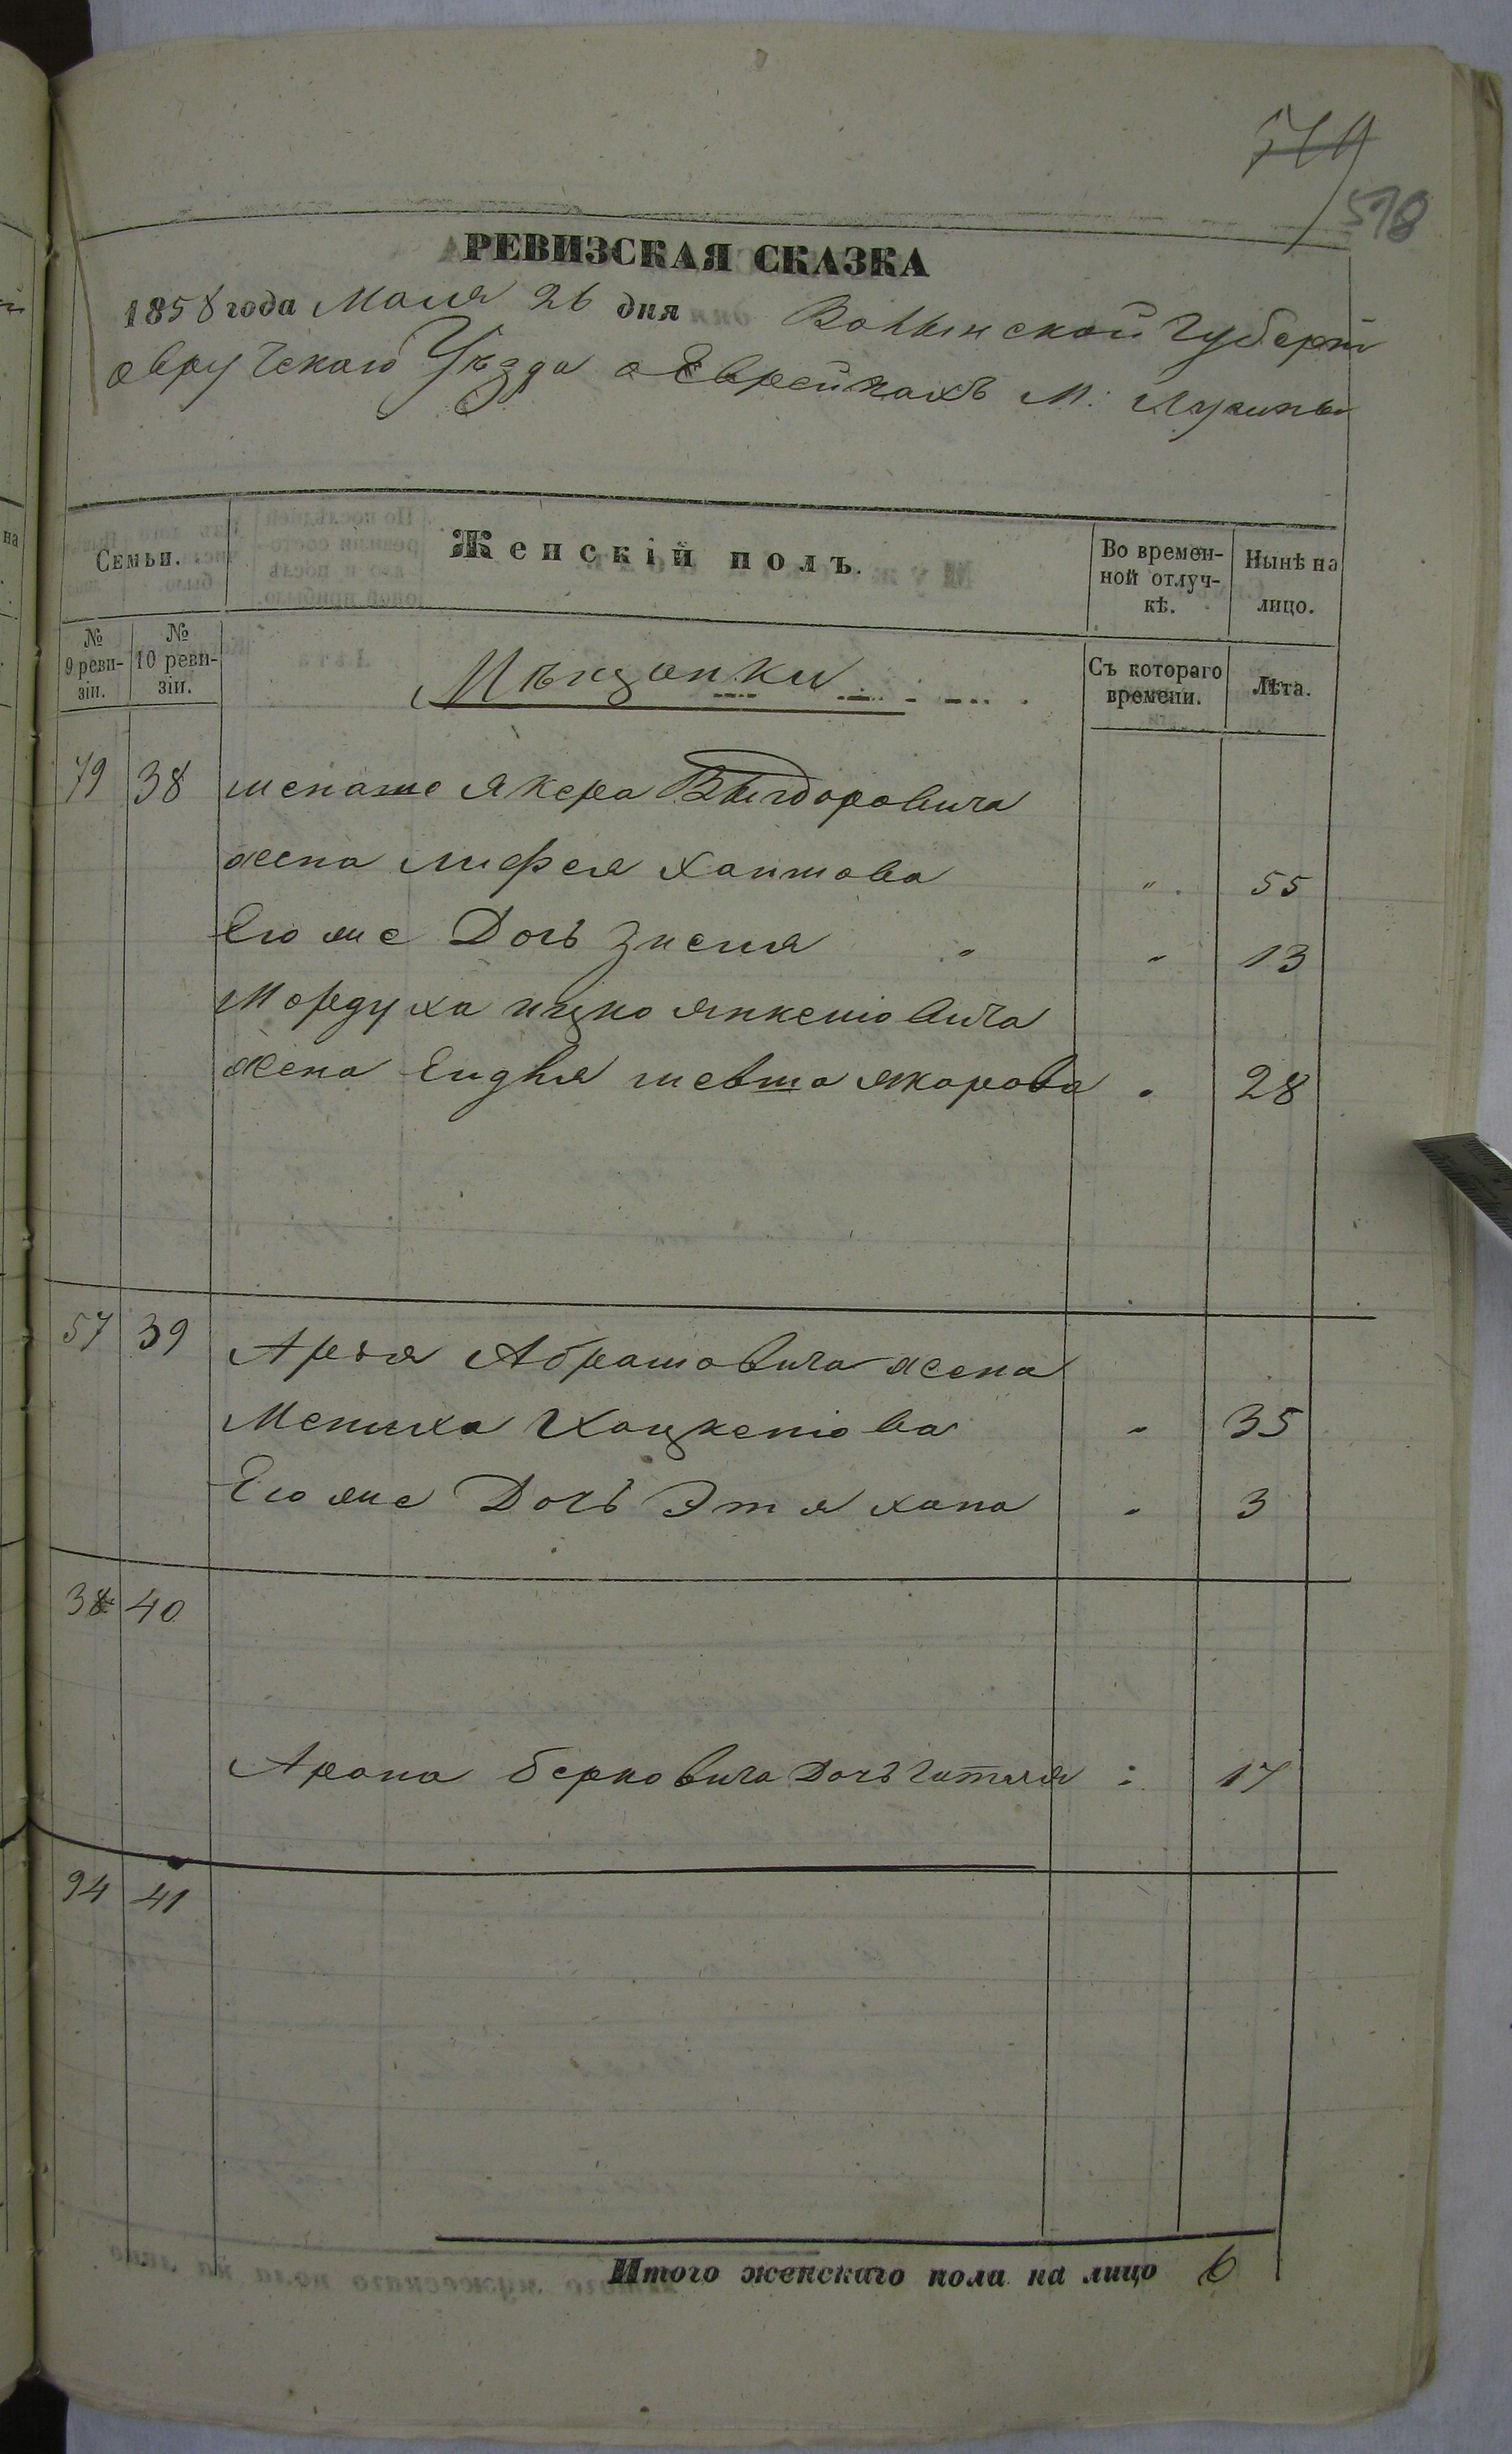 578
РЕВИЗСКАЯ СКАЗКА
1858 года Маия 26 дня Волынской Губерн
овручскаго Уѣзда о Еврейкахъ М. Лугины
Семьи.
Женскій полъ.
Во времен-
ной отлуч-
кѣ.
Нынѣ на
лицо.
№
9 реви-
зіи.
№
10 реви-
зіи.
Мѣщанки
Съ котораго
времени.
Лѣта.
79 38 менаше Якера Выгдоровича
жена Хаимова " 55
Его же Дочь Зисля " 13
Мордуха ицко янкелiовича
жена шевта якарова " 28
57 39 Арья Абрамовича жена
Мениха Хацкелiова " 35
Его же Дочь Этя хана " 3
38 40
Арона берковича Дочь Гитля : 17
94 41
Итого женскаго пола на лицо 6